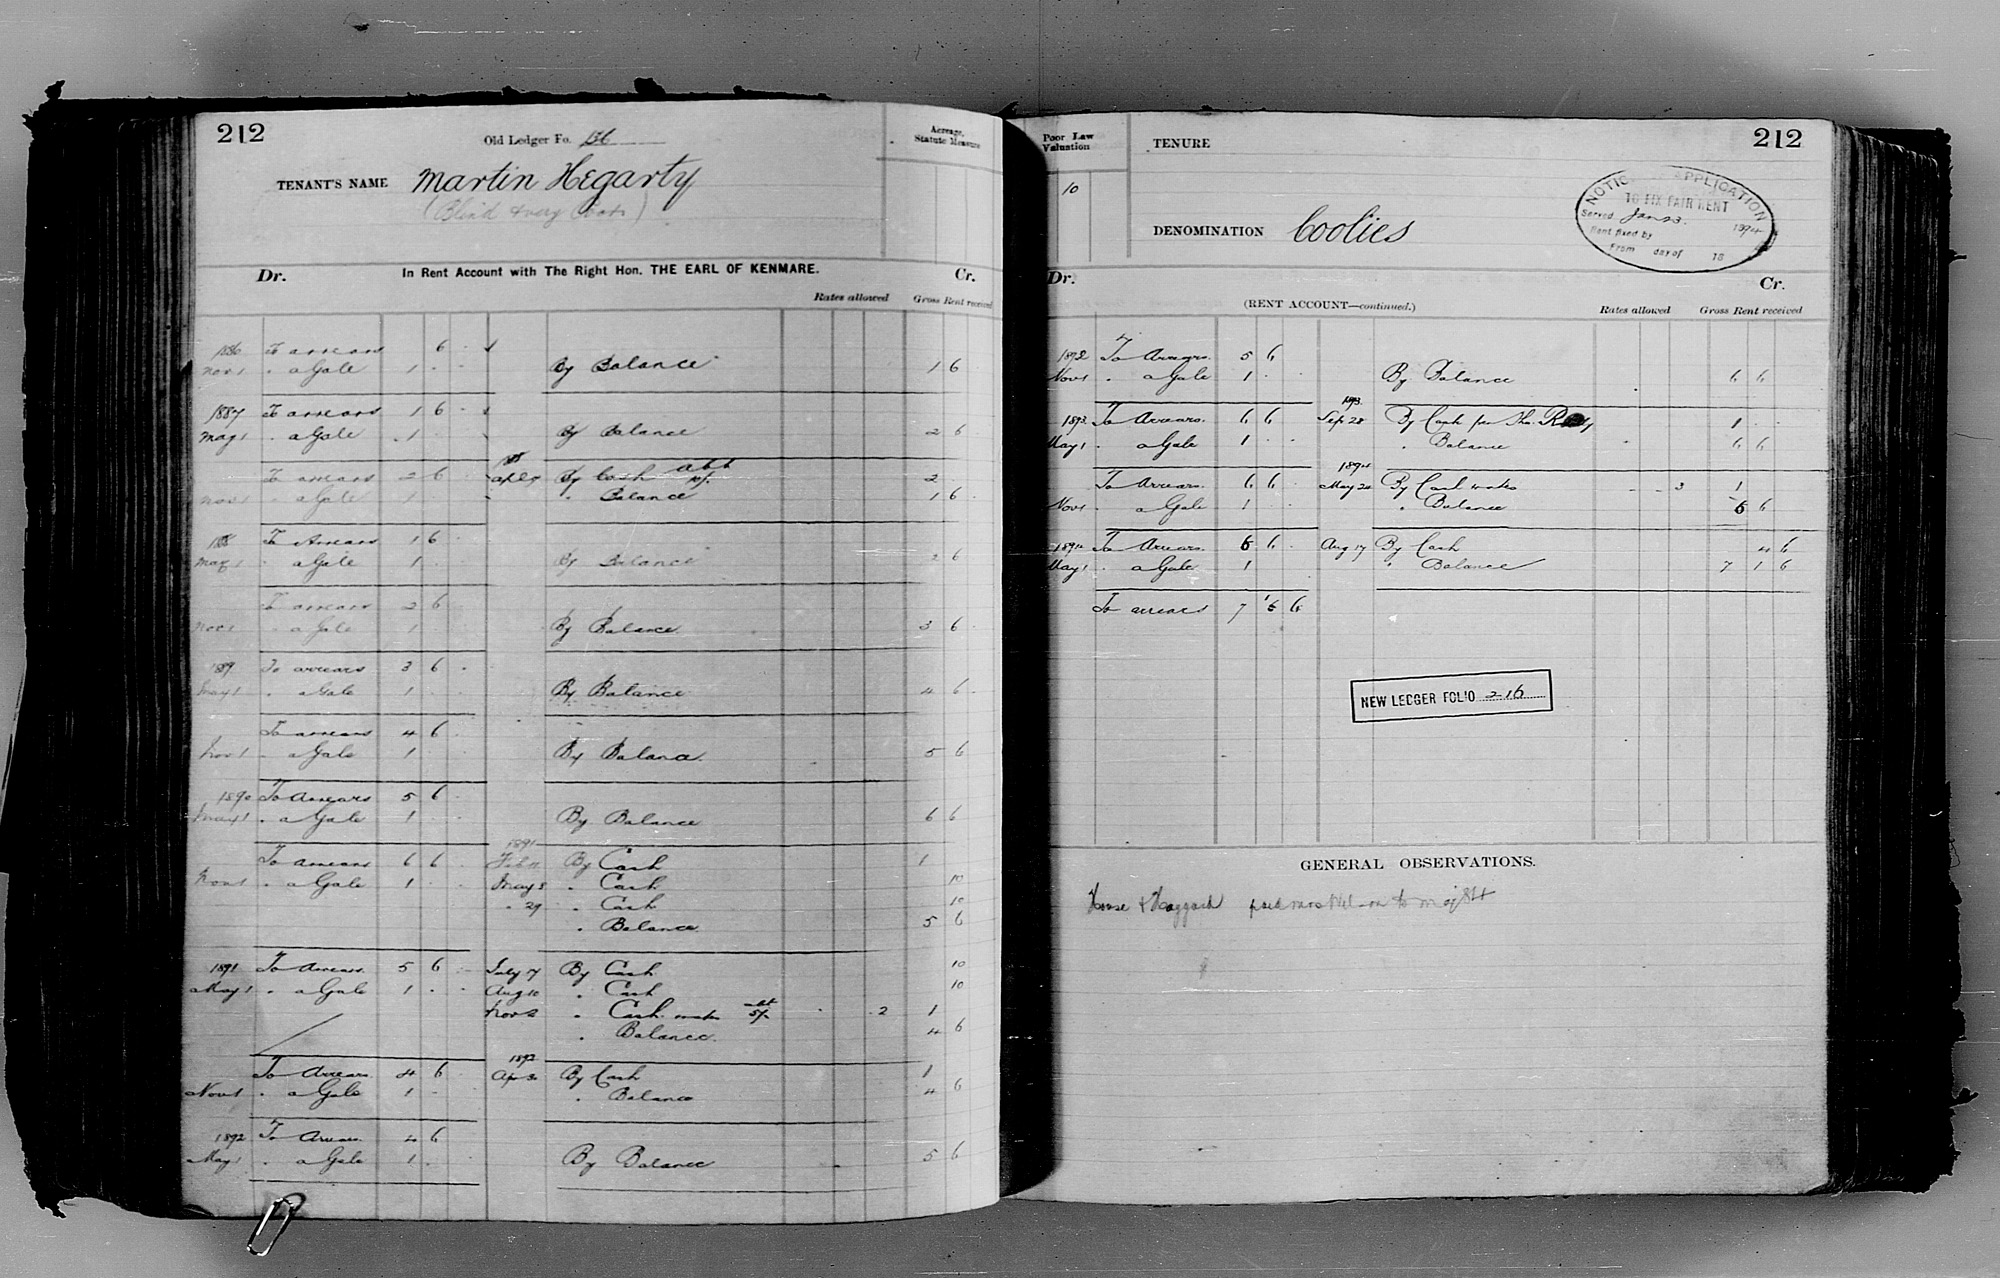 212
Old Ledger Fo. 136
Acreage, Statute Measure
TENANT'S NAME Martin Hegarty
(Blind & very Poor)
Dr. In Rent Account with The Right Hon. THE EARL OF KENMARE. Cr.
Rates allowed Gross Rent received
1886 To arrears 6
Nov 1 " a Gale 1 By Balance 1 6
1887 To arrears 1 6
May 1 " a Gale 1 By Balance 2 6
To arrears 2 6 Ap 27 By Cash abt 2
Nov 1 " a Gale 1 " Balance 1 6
1888 To Arrears 1 6
May 1 " a Gale 1 By Balance 2 6
To arrears 2 6
Nov 1 " a Gale 1 By Balance 3 6
1889 To arrears 3 6
May 1 " a Gale 1 By Balance 4 6
To arrears 4 6
Nov 1 " a Gale 1 By Balance 5 6
1890 To Arrears 5 6
May 1 " a Gale 1 By Balance 6 6
1891
To arrears 6 6 Feb 11 By Cash 1
Nov 1 " a Gale 1 May 8 " Cash 10
" 29 " Cash 10
" Balance 5 6
1891 To Arrears 5 6 July 17 By Cash 10
May 1 " a Gale 1 Aug 10 " Cash 10
Nov 2 " Cash abt 5/- 2 1
" Balance 4 6
1892
To Arrears 4 6 Ap 3 By Cash 1
Nov 1 " a Gale 1 " Balance 4 6
1892 To Arrears 4 6
May 1 " a Gale 1 By Balance 5 6
Poor Law Valuation
TENURE
212
10
NOTICE APPLICATION
TO FIX FAIR RENT
Served Jan 23. 1894
Rent fixed by
From day of 18
DENOMINATION Coolies
Dr. Cr.
(RENT ACCOUNT—continued.) Rates allowed Gross Rent received
1892 To Arrears 5 6
Nov 1 " a Gale 1 By Balance 6 6
1893
1893 To Arrears 6 6 Sep 28 By Cash per 1
May 1 " a Gale 1 " Balance 6 6
1894
To Arrears 6 6 May 20 By Cash 3 1
Nov 1 a Gale 1 " Balance 6 6
1894 To Arrears 6 6 Aug 17 By Cash 4 6
May 1 " a Gale 1 " Balance 7 1 6
To arrears 7 6
NEW LEDGER FOLIO 216
GENERAL OBSERVATIONS.
House & Haggard